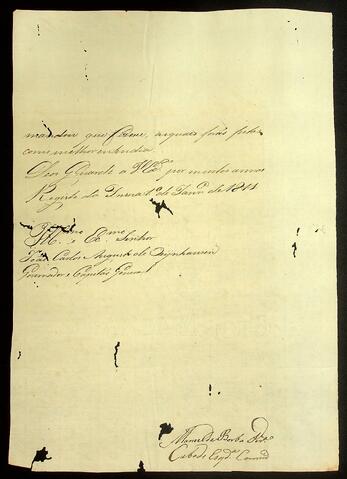 mandou que fosse, as quaes forão feitas
como melhor entendia
Deos Guarde a V Exª por muitos annos
Registo da Insua 1º de Janrº de 1811
Illmo e Exmo Senhor
João Carlos Augusto de Oeynhausen
Governador e Capitão General
Manoel de Borba
Cabo de Esqdª Comde